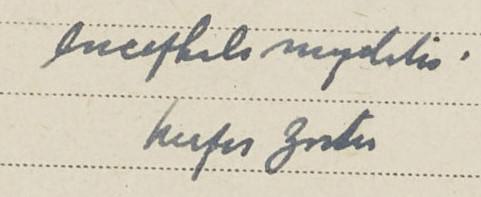 encephalo myelitis.
herpes zoster